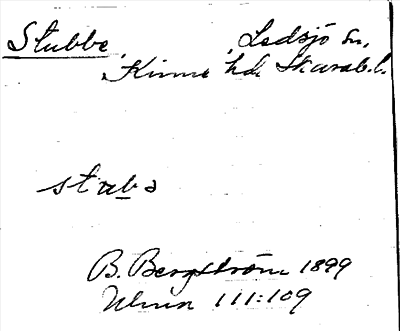 Stubbe, Ledsjö sn,
Kinne hd. Skarab.l.
stubə
B. Bergström 1899
111:109